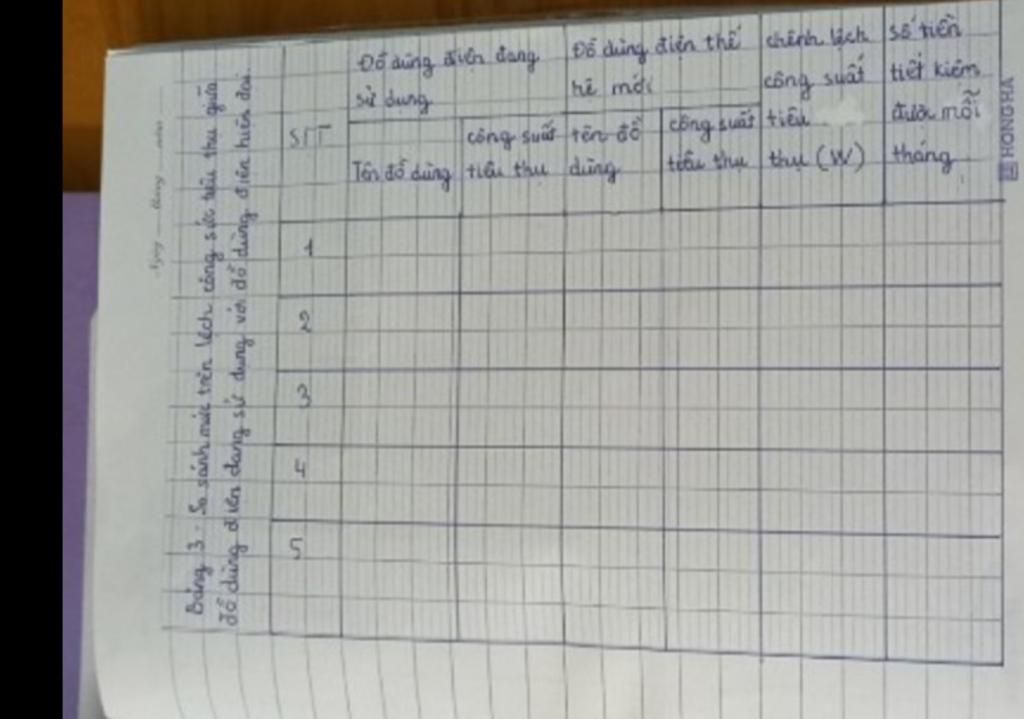 Bảng 3: So sánh mức trên lệch công sức tiêu thụ giữa
đồ dùng điện đang sử dụng với đồ dùng điện hiện đại.
STT
Đồ dùng điện đang
sử dụng
Tên đồ dùng
công suất
tiêu thụ
Đồ dùng điện thế
hệ mới
tên đồ
dùng
công suất
tiêu thụ
chênh lệch
công suất
tiêu
thụ (W)
số tiền
tiết kiệm
được mỗi
tháng
1
2
3
4
5
HONGHA